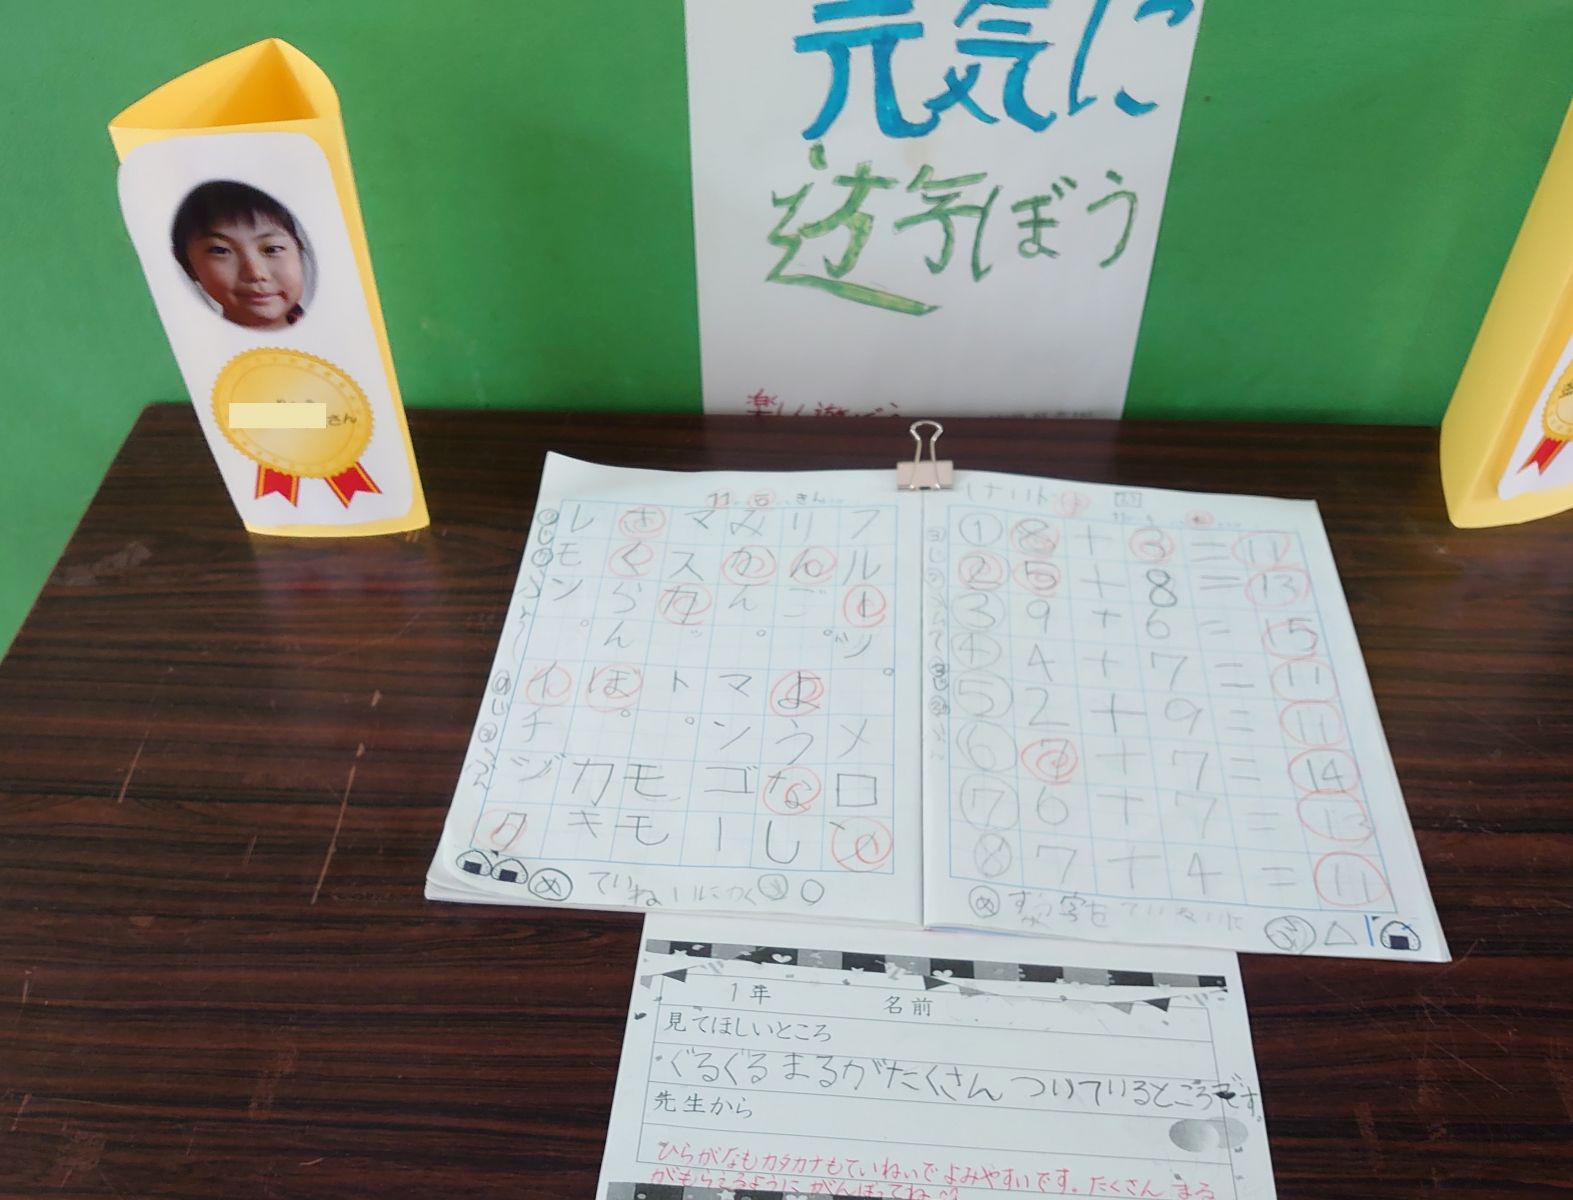 元気に
遊ぼう
楽しく遊ぼう
さん
11 5 きん
フルーツ。メロン
りんご。ような し
みかん。マンゴー
マスカッ ト。トマト
さくらん ぼ。カモモ
レモン。イチジク
① 8 + 3 = 11
② 5 + 8 = 13
③ 9 + 6 = 15
④ 4 + 7 = 11
⑤ 2 + 9 = 11
⑥ 7 + 7 = 14
⑦ 6 + 7 = 13
⑧ 7 + 4 = 11
め ていねいにかく ○
め すう字を ていねいに △
1年 名前
見てほしいところ
・ぐるぐるまるがたくさん ついているところです。
先生から
ひらがなもカタカナもていねいで よみやすいです。たくさん まる
がもらえるように がんばってね